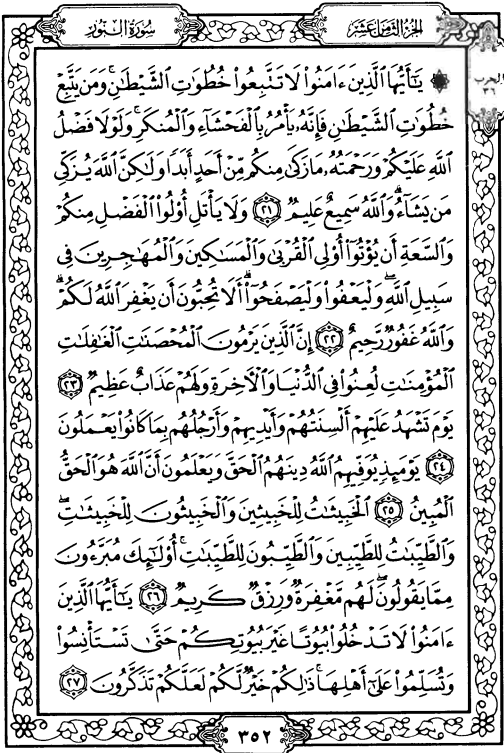 سُورَةُ النُّورِ
الجُزْءُ الثَّامِنَ عَشَرَ
الحزب ٣٦
يَٰٓأَيُّهَا ٱلَّذِينَ ءَامَنُوا۟ لَا تَتَّبِعُوا۟ خُطُوَٰتِ ٱلشَّيْطَٰنِ ۚ وَمَن يَتَّبِعْ
خُطُوَٰتِ ٱلشَّيْطَٰنِ فَإِنَّهُۥ يَأْمُرُ بِٱلْفَحْشَآءِ وَٱلْمُنكَرِ ۚ وَلَوْلَا فَضْلُ
ٱللَّهِ عَلَيْكُمْ وَرَحْمَتُهُۥ مَا زَكَىٰ مِنكُم مِّنْ أَحَدٍ أَبَدًا وَلَٰكِنَّ ٱللَّهَ يُزَكِّى
مَن يَشَآءُ ۗ وَٱللَّهُ سَمِيعٌ عَلِيمٌ ٢١ وَلَا يَأْتَلِ أُو۟لُوا۟ ٱلْفَضْلِ مِنكُمْ
وَٱلسَّعَةِ أَن يُؤْتُوٓا۟ أُو۟لِى ٱلْقُرْبَىٰ وَٱلْمَسَٰكِينَ وَٱلْمُهَٰجِرِينَ فِى
سَبِيلِ ٱللَّهِ ۖ وَلْيَعْفُوا۟ وَلْيَصْفَحُوٓا۟ ۗ أَلَا تُحِبُّونَ أَن يَغْفِرَ ٱللَّهُ لَكُمْ ۗ
وَٱللَّهُ غَفُورٌ رَّحِيمٌ ٢٢ إِنَّ ٱلَّذِينَ يَرْمُونَ ٱلْمُحْصَنَٰتِ ٱلْغَٰفِلَٰتِ
ٱلْمُؤْمِنَٰتِ لُعِنُوا۟ فِى ٱلدُّنْيَا وَٱلْءَاخِرَةِ وَلَهُمْ عَذَابٌ عَظِيمٌ ٢٣
يَوْمَ تَشْهَدُ عَلَيْهِمْ أَلْسِنَتُهُمْ وَأَيْدِيهِمْ وَأَرْجُلُهُم بِمَا كَانُوا۟ يَعْمَلُونَ
٢٤ يَوْمَئِذٍ يُوَفِّيهِمُ ٱللَّهُ دِينَهُمُ ٱلْحَقَّ وَيَعْلَمُونَ أَنَّ ٱللَّهَ هُوَ ٱلْحَقُّ
ٱلْمُبِينُ ٢٥ ٱلْخَبِيثَٰتُ لِلْخَبِيثِينَ وَٱلْخَبِيثُونَ لِلْخَبِيثَٰتِ ۖ
وَٱلطَّيِّبَٰتُ لِلطَّيِّبِينَ وَٱلطَّيِّبُونَ لِلطَّيِّبَٰتِ ۚ أُو۟لَٰٓئِكَ مُبَرَّءُونَ
مِمَّا يَقُولُونَ ۖ لَهُم مَّغْفِرَةٌ وَرِزْقٌ كَرِيمٌ ٢٦ يَٰٓأَيُّهَا ٱلَّذِينَ
ءَامَنُوا۟ لَا تَدْخُلُوا۟ بُيُوتًا غَيْرَ بُيُوتِكُمْ حَتَّىٰ تَسْتَأْنِسُوا۟
وَتُسَلِّمُوا۟ عَلَىٰٓ أَهْلِهَا ۚ ذَٰلِكُمْ خَيْرٌ لَّكُمْ لَعَلَّكُمْ تَذَكَّرُونَ ٢٧
٣٥٢